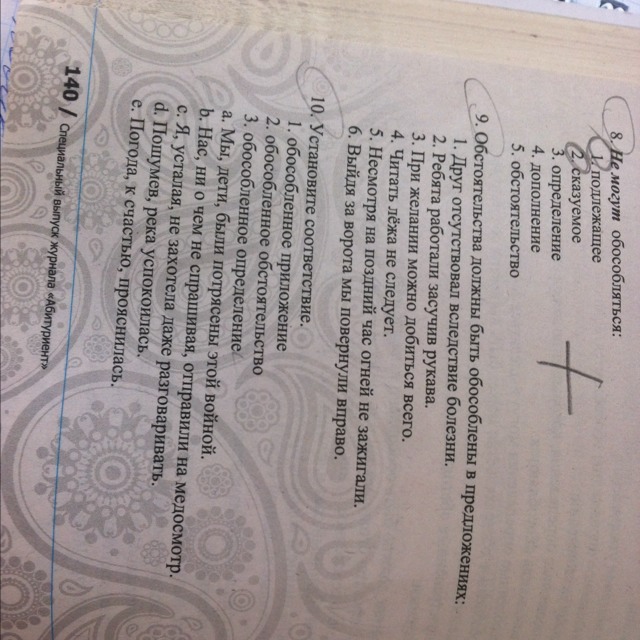 8. Не могут обособляться:
1. подлежащее
2. сказуемое
3. определение
4. дополнение
5. обстоятельство
9. Обстоятельства должны быть обособлены в предложениях:
1. Друг отсутствовал вследствие болезни.
2. Ребята работали засучив рукава.
3. При желании можно добиться всего.
4. Читать лёжа не следует.
5. Несмотря на поздний час огней не зажигали.
6. Выйдя за ворота мы повернули вправо.
10. Установите соответствие.
1. обособленное приложение
2. обособленное обстоятельство
3. обособленное определение
a. Мы, дети, были потрясены этой войной.
b. Нас, ни о чем не спрашивая, отправили на медосмотр.
c. Я, усталая, не захотела даже разговаривать.
d. Пошумев, река успокоилась.
e. Погода, к счастью, прояснилась.
140 / Специальный выпуск журнала «Абитуриент»